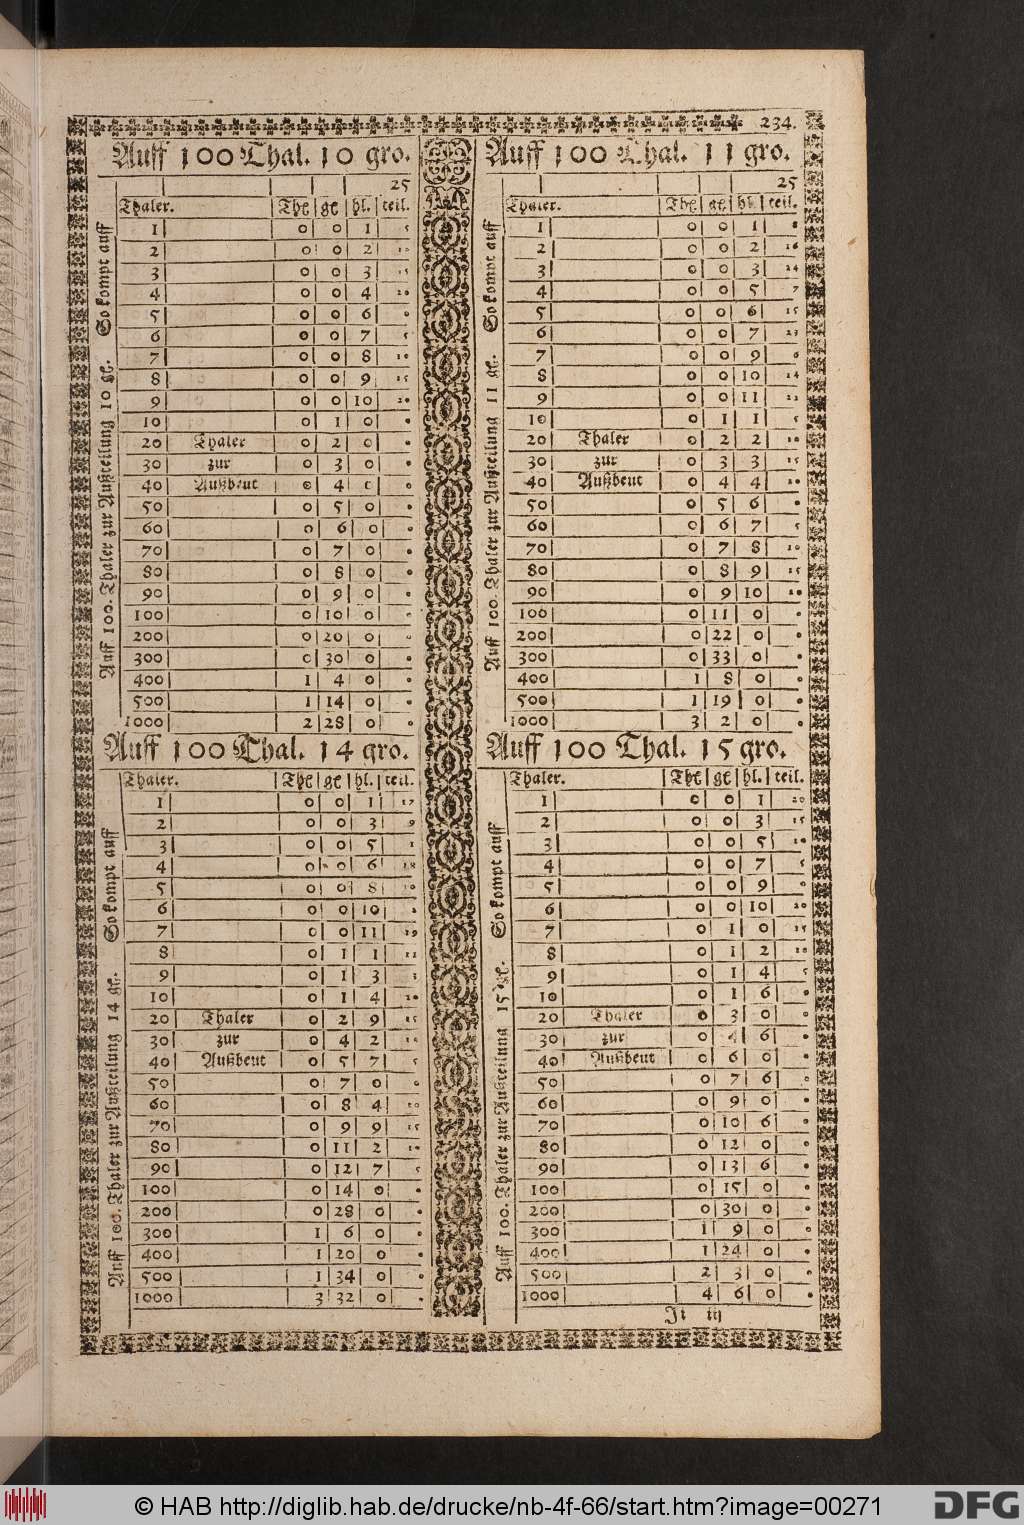 234.
Auff 100 Thal. 10 gro.
25
Thaler. Thl gl hl. teil.
1 0 0 1 5
2 0 0 2 10
3 0 0 3 15
4 0 0 4 20
5 0 0 6 0
6 0 0 7 5
7 0 0 8 10
8 0 0 9 15
9 0 0 10 20
10 0 1 0 0
20 Thaler 0 2 0 0
30 zur 0 3 0 0
40 Außbeut 0 4 0 0
50 0 5 0 0
60 0 6 0 0
70 0 7 0 0
80 0 8 0 0
90 0 9 0 0
100 0 10 0 0
200 0 20 0 0
300 0 30 0 0
400 1 4 0 0
500 1 14 0 0
1000 2 28 0 0
Auff 100. Thaler zur Außteilung 10 gl. So kompt auff
Auff 100 Thal. 11 gro.
25
Thaler. Thl gl hl. teil.
1 0 0 1 8
2 0 0 2 16
3 0 0 3 24
4 0 0 5 7
5 0 0 6 15
6 0 0 7 23
7 0 0 9 6
8 0 0 10 14
9 0 0 11 22
10 0 1 1 5
20 Thaler 0 2 2 10
30 zur 0 3 3 15
40 Außbeut 0 4 4 20
50 0 5 6 0
60 0 6 7 5
70 0 7 8 10
80 0 8 9 15
90 0 9 10 20
100 0 11 0 0
200 0 22 0 0
300 0 33 0 0
400 1 8 0 0
500 1 19 0 0
1000 3 2 0 0
Auff 100. Thaler zur Außteilung 11 gl. So kompt auff
Auff 100 Thal. 14 gro.
Thaler. Thl gl hl. teil.
1 0 0 1 17
2 0 0 3 9
3 0 0 5 1
4 0 0 6 18
5 0 0 8 10
6 0 0 10 2
7 0 0 11 19
8 0 1 1 11
9 0 1 3 3
10 0 1 4 20
20 Thaler 0 2 9 15
30 zur 0 4 2 10
40 Außbeut 0 5 7 5
50 0 7 0 0
60 0 8 4 20
70 0 9 9 15
80 0 11 2 10
90 0 12 7 5
100 0 14 0 0
200 0 28 0 0
300 1 6 0 0
400 1 20 0 0
500 1 34 0 0
1000 3 32 0 0
Auff 100. Thaler zur Außteilung 14 gl. So kompt auff
Auff 100 Thal. 15 gro.
Thaler. Thl gl hl. teil.
1 0 0 1 20
2 0 0 3 15
3 0 0 5 10
4 0 0 7 5
5 0 0 9 0
6 0 0 10 20
7 0 1 0 15
8 0 1 2 10
9 0 1 4 5
10 0 1 6 0
20 Thaler 0 3 0 0
30 zur 0 4 6 0
40 Außbeut 0 6 0 0
50 0 7 6 0
60 0 9 0 0
70 0 10 6 0
80 0 12 0 0
90 0 13 6 0
100 0 15 0 0
200 0 30 0 0
300 1 9 0 0
400 1 24 0 0
500 2 3 0 0
1000 4 6 0 0
Auff 100. Thaler zur Außteilung 15 gl. So kompt auff
© HAB http://diglib.hab.de/drucke/nb-4f-66/start.htm?image=00271
DFG